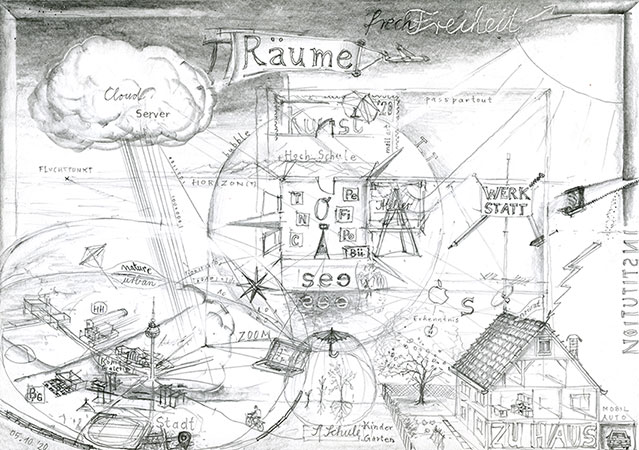 frech Freiheit
TRäume
Cloud
Server
passpartout
Kunst
Hoch-Schule
bubble
FLUCHTPUNKT
HORIZON(T)
T
N
C
Pe
Fi
Pe
Bü
Atelier
WERK
STATT
see
INSTITUTION
nature
urban
HH
S
Erkenntnis
ZOOM
Stadt
Schule
Kinder
Garten
ZU HAUS
MOBIL
AUTO
05.10.'20